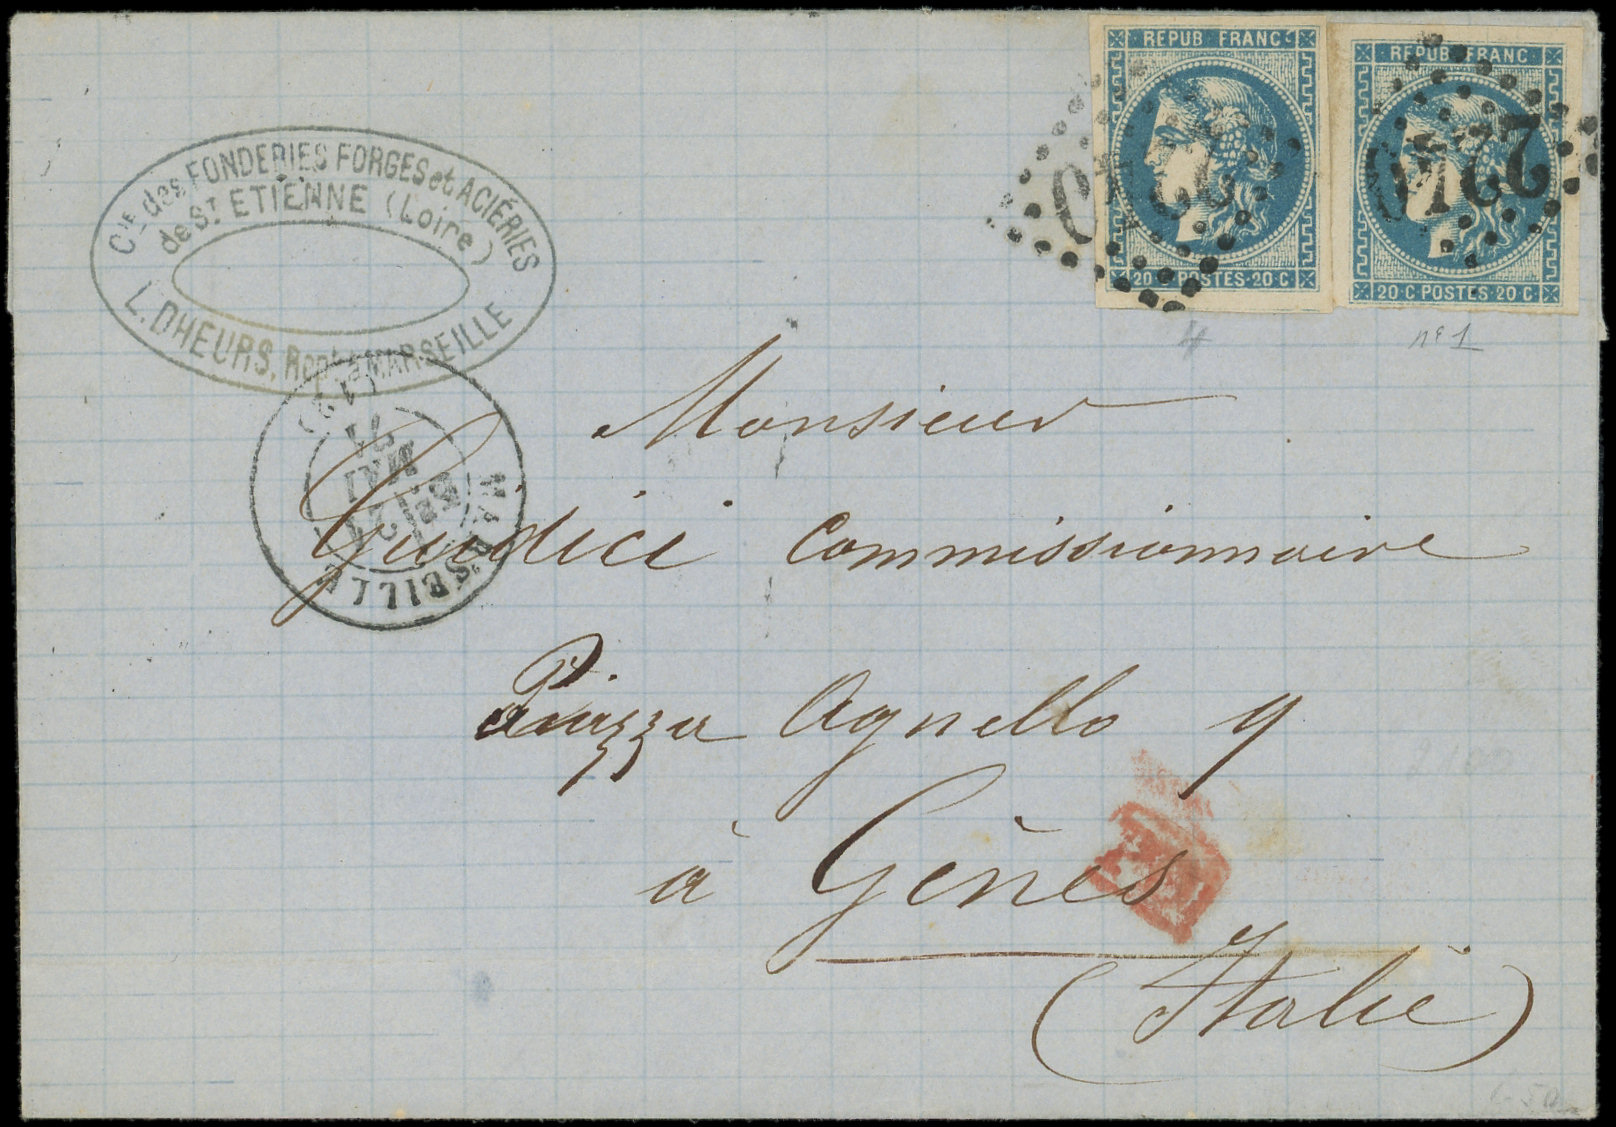 REPUB FRANC
20 C POSTES 20 C
REPUB FRANC
20 C POSTES 20 C
2240
2240
4
nº 1
Cie des FONDERIES FORGES et ACIÉRIES
de St ETIENNE (Loire)
L. DHEURS, Rept à MARSEILLE
MARSEILLE (12)
5E
21
MAI
71
Monsieur
Giudice Commissionnaire
Piazza Agnello 9
à Gênes
(Italie)